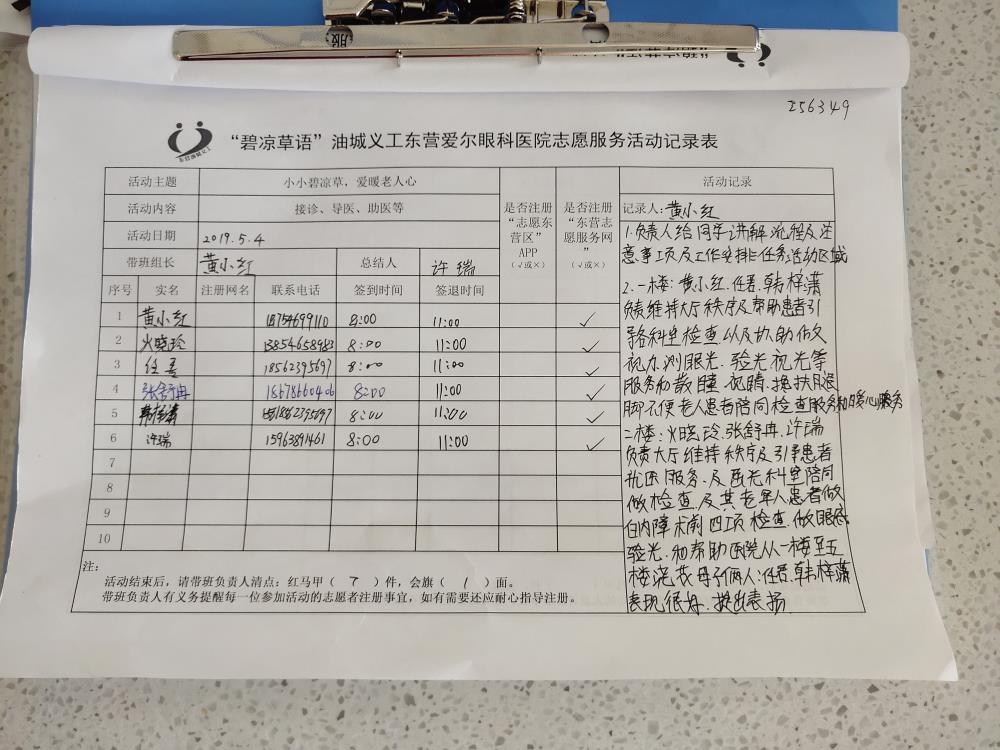 I56349
东营油城义工
“碧凉草语”油城义工东营爱尔眼科医院志愿服务活动记录表
活动主题 小小碧凉草，爱暖老人心
活动内容 接诊、导医、助医等
活动日期 2019.5.4
带班组长 黄小红 总结人 许瑞
是否注册“志愿东营区”APP（√或×）
是否注册“东营志愿服务网”（√或×）
序号 实名 注册网名 联系电话 签到时间 签退时间
1 黄小红 18754699110 8:00 11:00 ✓
2 火晓玲 13854658983 8:00 11:00 ✓
3 任 18562395697 8:00 11:00 ✓
4 张舒冉 18678660406 8:00 11:00 ✓
5 8:00 11:00 ✓
6 许瑞 15963891461 8:00 11:00 ✓
7
8
9
10
注：
活动结束后，请带班负责人清点：红马甲（ 7 ）件，会旗（ 1 ）面。
带班负责人有义务提醒每一位参加活动的志愿者注册事宜，如有需要还应耐心指导注册。
活动记录
记录人：黄小红
1.负责人给同学讲解流程及注
意事项及工作安排任务活动区域
2.一楼：黄小红.任.韩梓潇
负责维持大厅秩序及帮助患者引
导各科室检查以及协助做
视力.测眼光.验光视光等
服务和散瞳.视睛.搀扶腿
脚不便老人患者陪同检查服务和暖心服务
二楼：火晓玲.张舒冉.许瑞
负责大厅维持秩序及引导患者
扰困服务.及医光科室陪同
做检查.及其老年人患者做
白内障术前四项检查.做眼底
验光.和帮助医院从一楼至五
楼浇花母子俩人：任.韩梓潇
表现很好.提出表扬